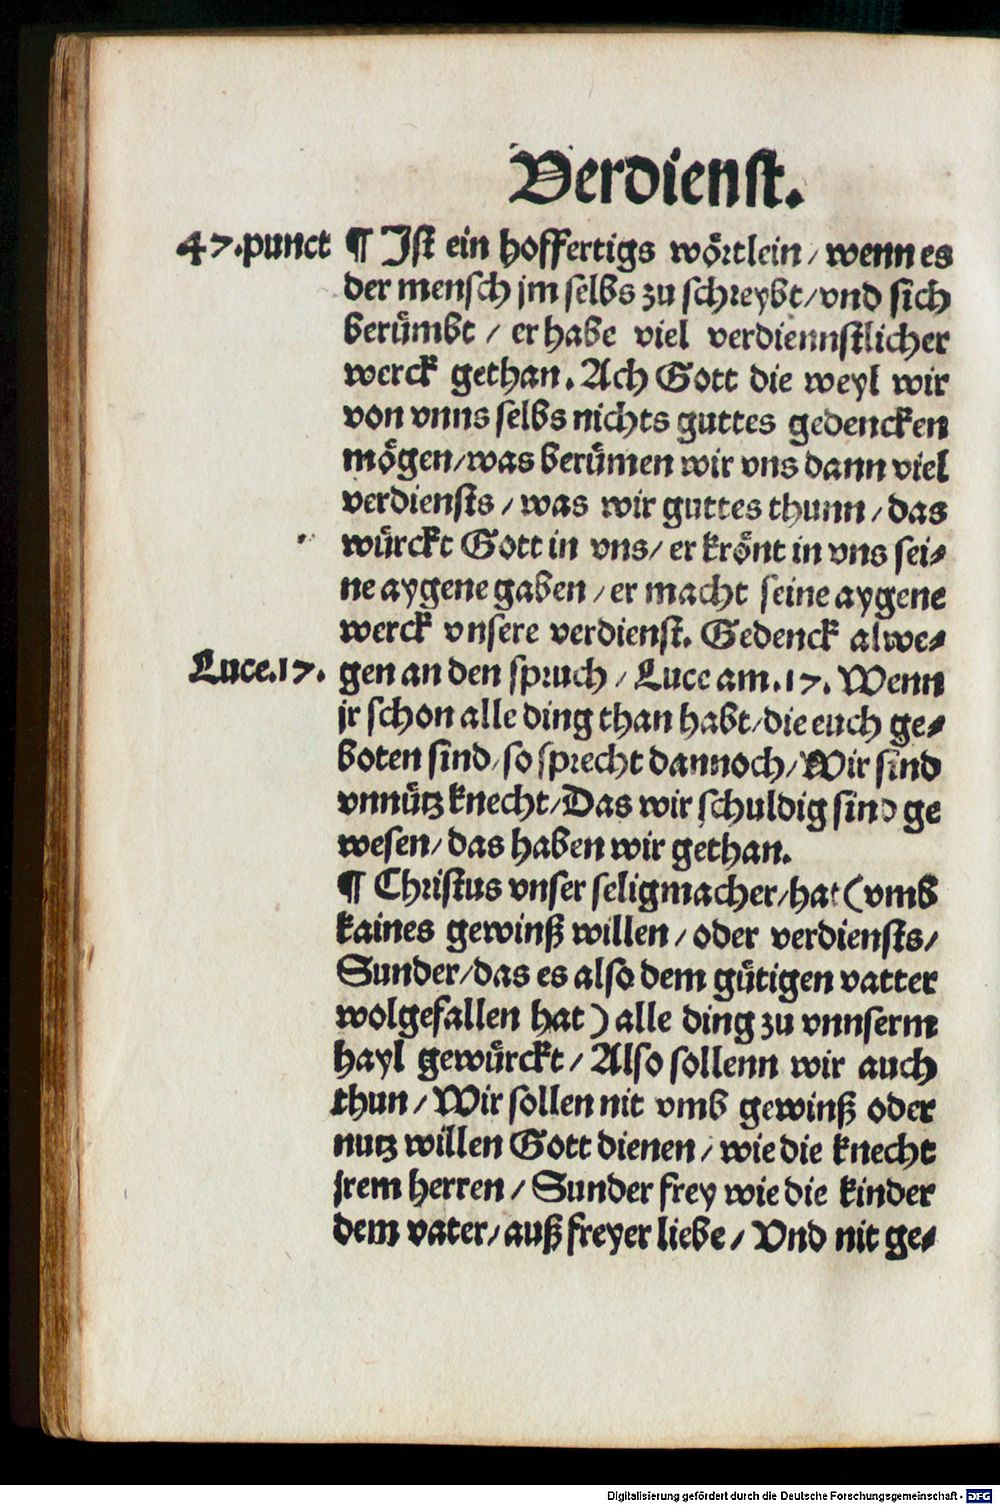 Verdienst.
47.punct ¶ Jst ein hoffertigs wörtlein / wenn es
der mensch jm selbs zu schreybt / vnd sich
berümbt / er habe viel verdiennstlicher
werck gethan. Ach Gott die weyl wir
von vnns selbs nichts guttes gedencken
mögen / was berümen wir vns dann viel
verdiensts / was wir guttes thunn / das
würckt Gott in vns / er krönt in vns sei⸗
ne aygene gaben / er macht seine aygene
werck vnsere verdienst. Gedenck alwe⸗
Luce.17. gen an den spruch / Luce am .17. Wenn
jr schon alle ding than habt / die euch ge⸗
boten sind / so sprecht dannoch / Wir sind
vnnütz knecht / Das wir schuldig sind ge
wesen / das haben wir gethan.
¶ Christus vnser seligmacher / hat (vmb
kaines gewinß willen / oder verdiensts /
Sunder / das es also dem gütigen vatter
wolgefallen hat) alle ding zu vnnserm
hayl gewürckt / Also sollenn wir auch
thun / Wir sollen nit vmb gewinß oder
nutz willen Gott dienen / wie die knecht
jrem herren / Sunder frey wie die kinder
dem vater / auß freyer liebe / Vnd nit ge⸗
Digitalisierung gefördert durch die Deutsche Forschungsgemeinschaft - DFG